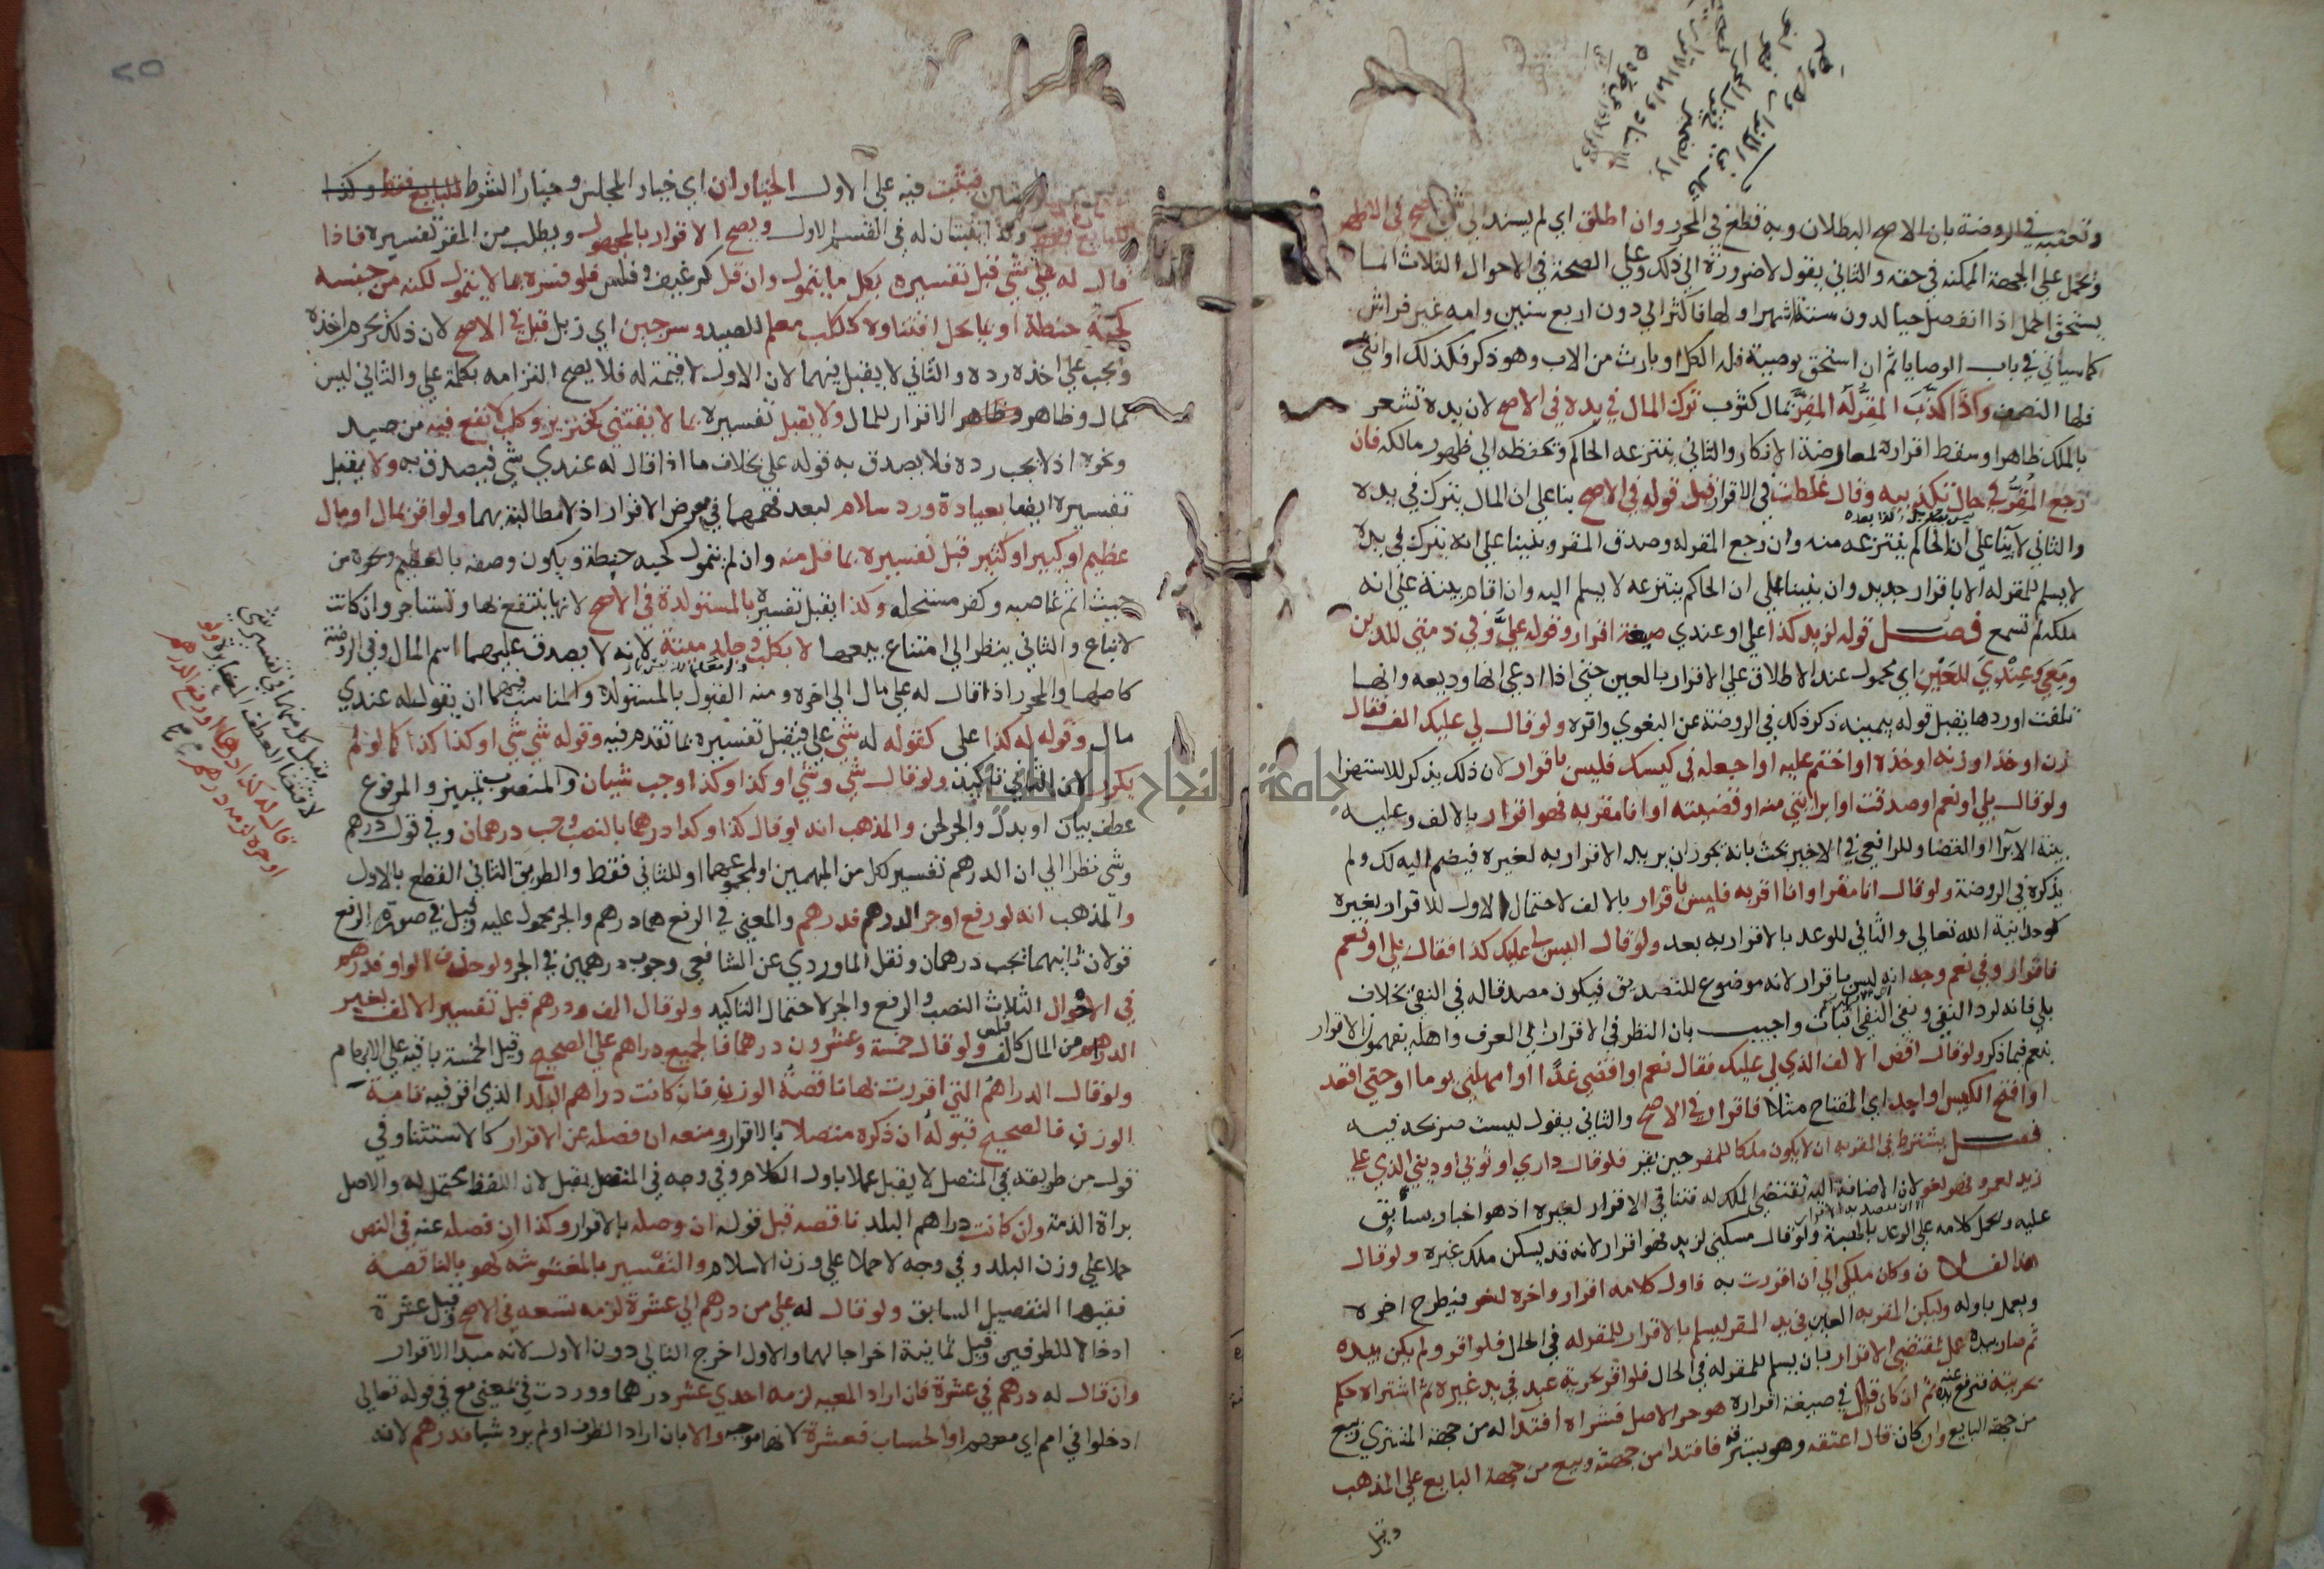 وتعقبه في الروضة بان الاصح البطلان وبه قطع في المحرر وان اطلق اي لم يسند الى شي صح في الاظهر
وتحمل علي الجهة الممكنه في حقه والثاني يقول لا ضرورة الي ذلك وعلي الصحة في الاحوال الثلاث انما
يستحق الحمل اذا انفصل حيا لدون ستة اشهر او لها فاكثر الي دون اربع سنين وامه غير فراش
كما سياتي في باب الوصايا ثم ان استحق بوصية فله الكل او بارث من الاب وهو ذكر فكذلك او انثي
فلها النصف واذا كذب المقر له المقر بمال كثوب ترك المال في يده في الاصح لان يده تشعر
بالملك ظاهرا وسقط اقراره لمعارضة الانكار والثاني ينتزعه الحاكم وتحفظه الي ظهور مالكه فان
رجع المقر في حال تكذيبه وقال غلطت في الاقرار قبل قوله في الاصح بنا علي ان المال يترك في يده
والثاني لا بنا علي ان الحاكم ينتزعه منه وان رجع المقر له وصدق المقر وبنينا علي انه يترك في يده
لا يسلم للمقر له الا باقرار جديد وان بنينا علي ان الحاكم ينتزعه لا يسلم اليه وان اقام بينة علي انه
ملكه لم تسمع فصل قوله لزيد كذا علي او عندي صيغة اقرار وقوله علي وفي ذمتي للدين
ومعي وعندي للعين اي محمول عند الاطلاق علي الاقرار بالعين حتي اذا ادعي انها وديعه وانها
تلفت او ردها يقبل قوله بيمينه ذكر ذلك في الروضة عن البغوي واقره ولو قال لي عليك الف فقال
زن او خذ او زنه او خذه او اختم عليه او اجعله في كيسك فليس باقرار لان ذلك يذكر للاستهزا
ولو قال بلي او نعم او صدقت او ابراتني منه او قضيته او انا مقر به فهو اقرار بالالف وعليه
بينة الابرا او القضا وللرافعي في الاخير بحث بانه يجوز ان يريد الاقرار به لغيره فيضم اليه لك ولم
يذكره في الروضة ولو قال انا مقر او انا اقر به فليس باقرار بالالف لاحتمال الاول للاقرار بغيره
كوحدانية الله تعالي والثاني للوعد بالاقرار به بعد ولو قال اليس لي عليك كذا فقال بلي او نعم
فاقرار وفي نعم وجه انه ليس باقرار لانه موضوع للتصديق فيكون مصدقا له في النفي بخلاف
بلي فانه لرد النفي ونفي النفي اثبات واجيب بان النظر في الاقرار الي العرف واهله يفهمون الاقرار
بنعم فيما ذكر ولو قال اقض الالف الذي لي عليك فقال نعم او اقضي غدا او امهلني يوما او حتي اقعد
او افتح الكيس او اجد اي المفتاح مثلا فاقرار في الاصح والثاني يقول ليست صريحة فيه
فصل يشترط في المقر به ان لا يكون ملكا للمقر حين يقر فلو قال داري او ثوبي او ديني الذي علي
زيد لعمرو فهو لغو لان الاضافة اليه تقتضي الملك له فتنافي الاقرار لغيره اذ هو اخبار سابق
عليه وتحمل كلامه علي الوعد بالهبة ولو قال مسكني لزيد فهو اقرار لانه قد يسكن ملك غيره ولو قال
هذا لفلان وكان ملكي الي ان اقررت به فاول كلامه اقرار واخره لغو فيطرح اخره
ويعمل باوله وليكن المقر به العين في يد المقر ليسلم بالاقرار للمقر له في الحال فلو اقر ولم يكن بيده
ثم صار بيده عمل بمقتضي الاقرار بان يسلم للمقر له في الحال فلو اقر بحرية عبد في يد غيره ثم اشتراه حكم
بحريته فترفع يده عنه ثم ان كان قال في صيغة اقراره هو حر الاصل فشراه افتدا له من جهة المشتري وبيع
من جهة البايع وان كان قال اعتقه وهو يسترقه فافتدا من جهته وبيع من جهة البايع علي المذهب
وقيل
فيثبت فيه علي الاول الخياران اي خيار المجلس وخيار الشرط للبايع فقط وكذا
للبايع فقط وكذا يثبتان له في القسم الاول ويصح الاقرار بالمجهول ويطلب من المقر تفسيره فاذا
قال له علي شي قبل تفسيره بكل ما يتمول وان قل كرغيف وفلس فلو فسره بما لا يتمول لكنه من جنسه
كحبة حنطة او بما يحل اقتناوه ككلب معلم للصيد وسرجين اي زبل قبل في الاصح لان ذلك يحرم اخذه
ويجب علي اخذه رده والثاني لا يقبل فيهما لان الاول لا قيمة له فلا يصح التزامه بكلمة علي والثاني ليس
بمال وظاهر وظاهر الاقرار للمال ولا يقبل تفسيره بما لا يقتني كخنزير وكلب لا نفع فيه من صيد
ونحوه اذ لا يجب رده فلا يصدق به قوله علي بخلاف ما اذا قال له عندي شي فيصدق به ولا يقبل
تفسيره ايضا بعيادة ورد سلام لبعد فهمهما في معرض الاقرار اذ لا مطالبة بهما ولو اقر بمال او مال
عظيم او كبير او كثير قبل تفسيره بما قل منه وان لم يتمول كحبة حنطة ويكون وصفه بالعظيم ونحوه من
حيث اثم غاصبه وكفر مستحله وكذا يقبل تفسيره بالمستولدة في الاصح لانها ينتفع بها وتستاجر وان كانت
لا تباع والثاني ينظر الي امتناع بيعها لا بكلب وجلد ميتة لانه لا يصدق عليهما اسم المال وفي الروضة
كاصلها والمحرر اذا قال له علي مال الي اخره ومنه القبول بالمستولدة والمناسب فيهما ان يقول له عندي
مال وقوله له كذا علي كقوله له شي علي فيقبل تفسيره بما تقدم فيه وقوله شي شي او كذا كذا كما لو لم
يكرر لان الثاني تاكيد ولو قال شي وشي او كذا وكذا وجب شيان والمنصوب تمييز والمرفوع
عطف بيان او بدل والجر لحن والمذهب انه لو قال كذا وكذا درهما بالنصب وجب درهمان وفي قول درهم
وشي نظرا الي ان الدرهم تفسير لكل من المبهمين او لمجموعهما او للثاني فقط والطريق الثاني القطع بالاول
والمذهب انه لو رفع او جر الدرهم فدرهم والمعني في الرفع هما درهم والجر محمول عليه وقيل في صورة الرفع
قولان ثانيهما يجب درهمان ونقل الماوردي عن الشافعي وجوب درهمين في الجر ولو حذف الواو فدرهم
في الاحوال الثلاث النصب والرفع والجر لاحتمال التاكيد ولو قال الف ودرهم قبل تفسير الالف بغير
الدراهم من المال كالف فلس ولو قال خمسة وعشرون درهما فالجميع دراهم علي الصحيح وقيل الخمسة باقية علي الابهام
ولو قال الدراهم التي اقررت بها ناقصة الوزن فان كانت دراهم البلد الذي اقر فيه تامة
الوزن فالصحيح قبوله ان ذكره متصلا بالاقرار ومنعه ان فصله عن الاقرار كالاستثنا وفي
قول من طريقه في المتصل لا يقبل عملا باول الكلام وفي وجه في المنفصل يقبل لان اللفظ يحتمل له والاصل
براة الذمة وان كانت دراهم البلد ناقصة قبل قوله ان وصله بالاقرار وكذا ان فصله عنه في النص
حملا علي وزن البلد وفي وجه لا حملا علي وزن الاسلام والتفسير بالمغشوشة كهو بالناقصة
ففيها التفصيل السابق ولو قال له علي من درهم الي عشرة لزمه تسعة في الاصح وقيل عشرة
ادخالا للطرفين وقيل ثمانية اخراجا لهما والاول اخرج الثاني دون الاول لانه مبدا الاقرار
وان قال له درهم في عشرة فان اراد المعية لزمه احدي عشر درهما ووردت في بمعني مع في قوله تعالي
ادخلوا في امم اي معهم او الحساب فعشرة لانها موجبه والا بان اراد الظرف او لم يرد شيا فدرهم لانه
فيقبل كل منهما في تفسير شي
لاقتضا العطف المغايرة ولو
قال له كذا درهما او رفع الدرهم
او جره لزمه درهم
جامعة النجاح الوطنية